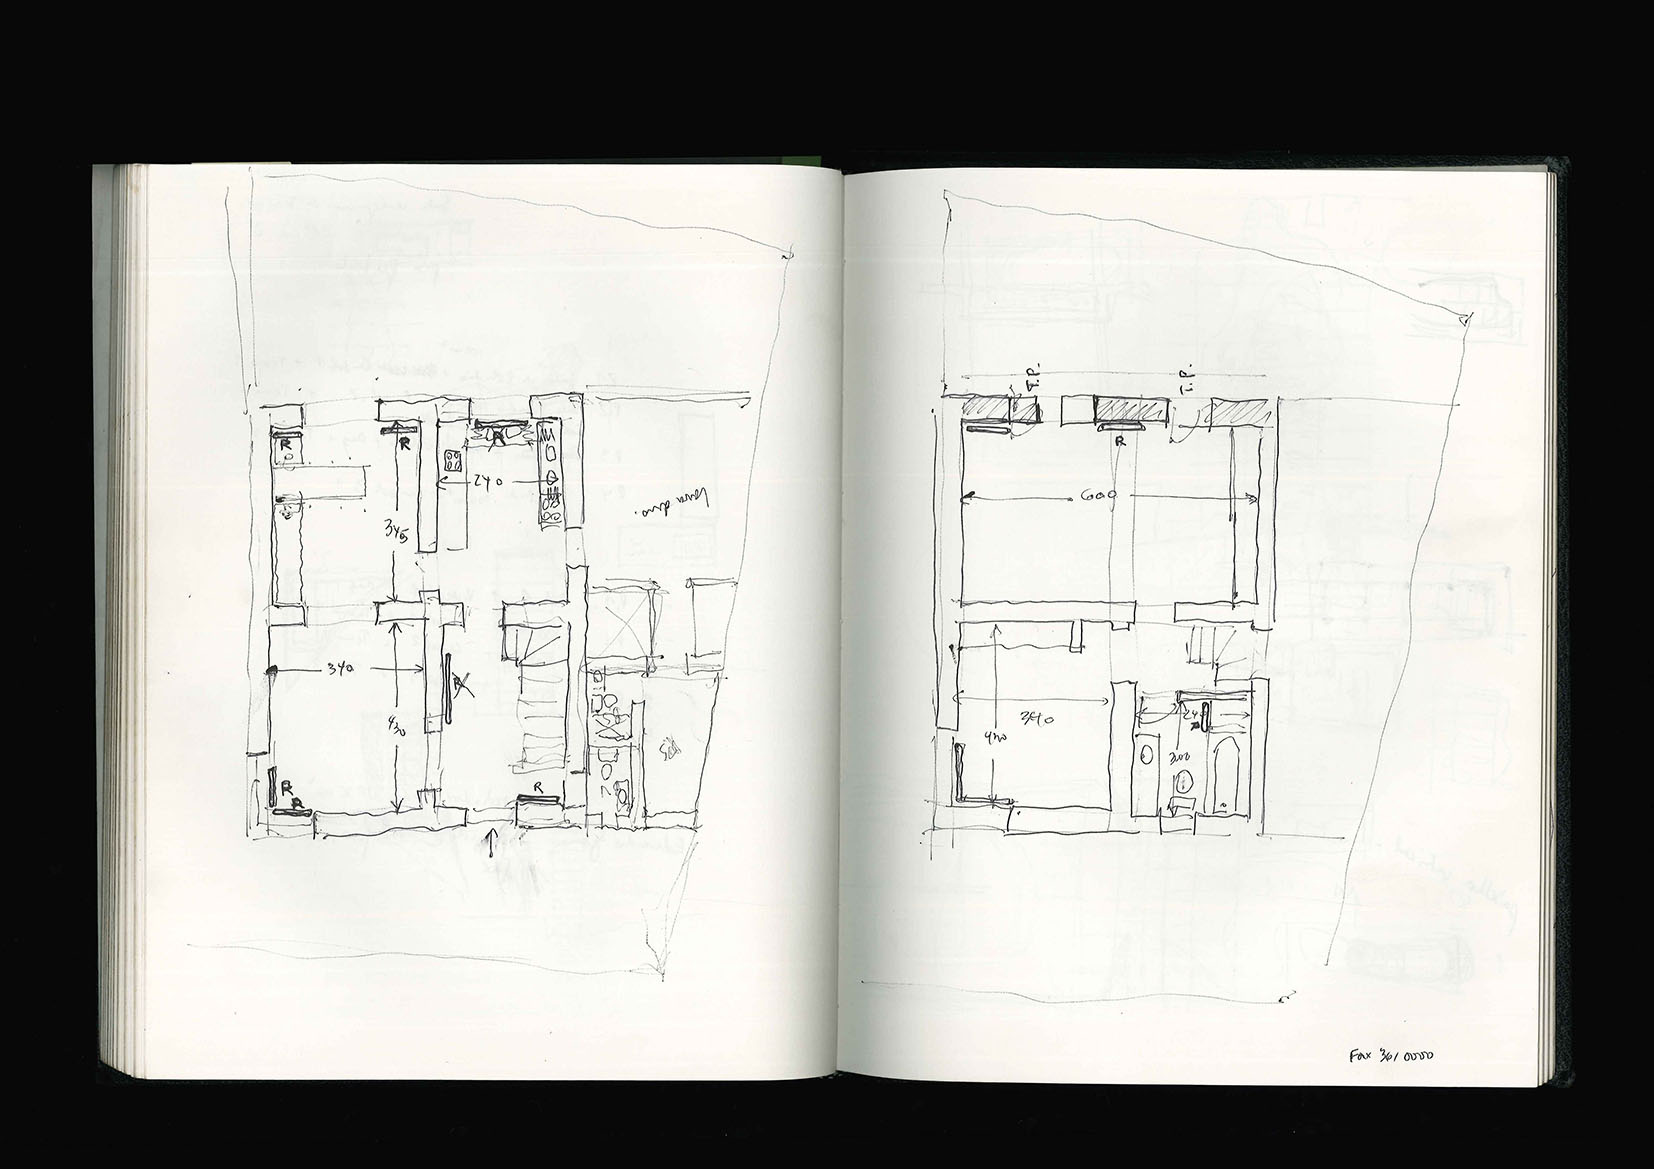 R
R
R
240
345
340
430
R
R
R
R
T.P.
T.P.
R
600
340
430
240
300
Fax 361 0000